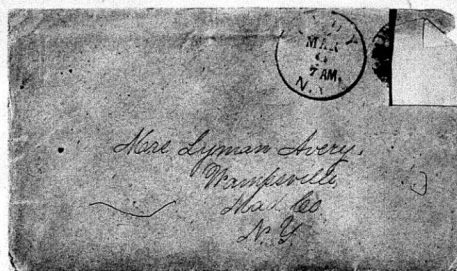 MAR
6
7 AM.
N.Y.
Mrs Lyman Avery,
Wampsville,
Mad. Co
N.Y